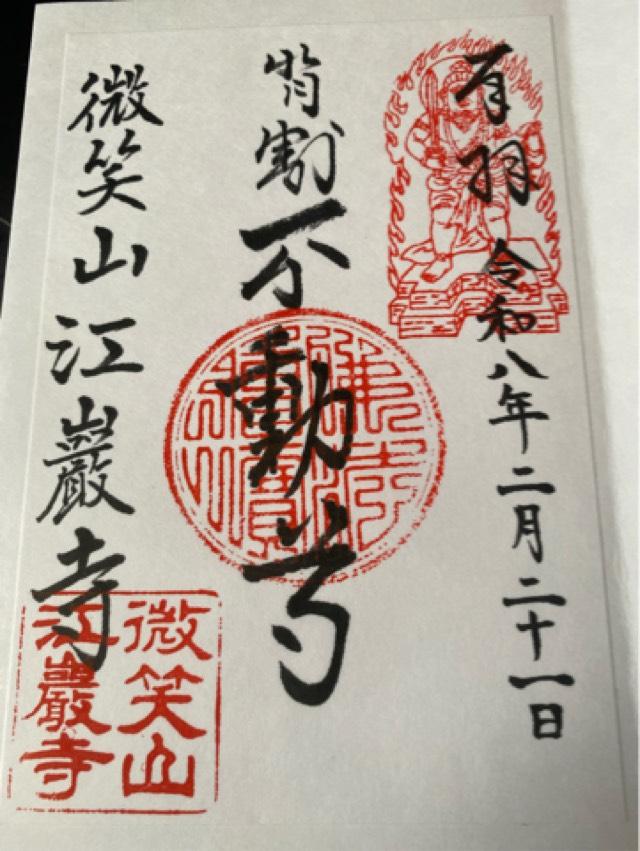 令和八年二月二十一日
背割不動尊
微笑山江巖寺
微笑山
江巖寺